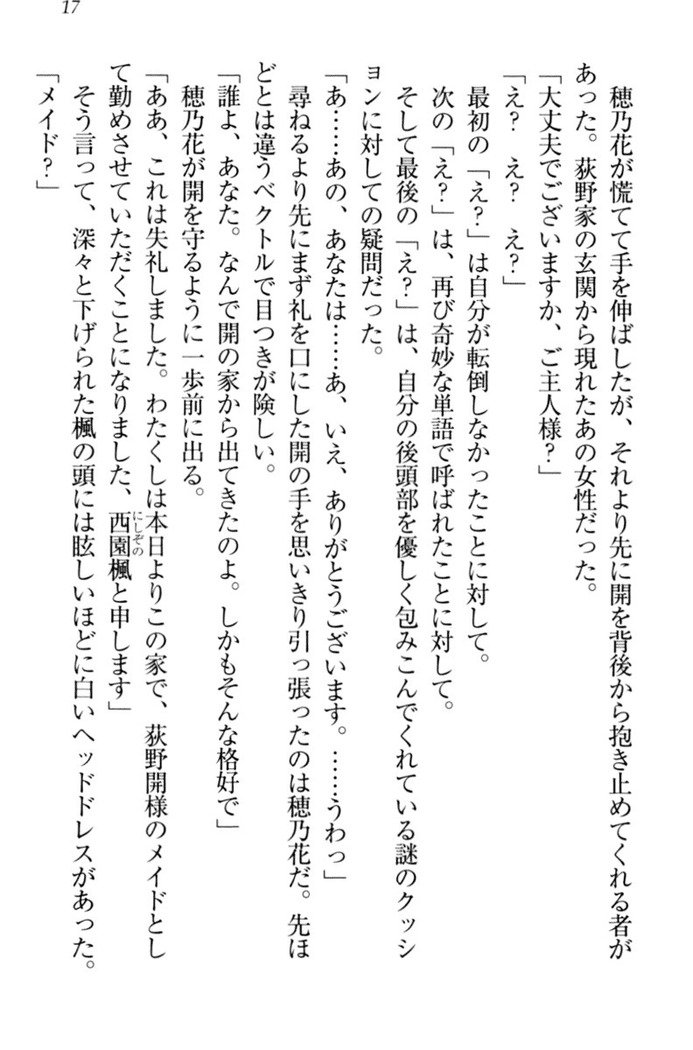 17
穂乃花が慌てて手を伸ばしたが、それより先に開を背後から抱き止めてくれる者が
あった。荻野家の玄関から現れたあの女性だった。
「大丈夫でございますか、ご主人様?」
「え?　え?　え?」
最初の「え?」は自分が転倒しなかったことに対して。
次の「え?」は、再び奇妙な単語で呼ばれたことに対して。
そして最後の「え?」は、自分の後頭部を優しく包みこんでくれている謎のクッシ
ョンに対しての疑問だった。
「あ……あの、あなたは……あ、いえ、ありがとうございます。……うわっ」
尋ねるより先にまず礼を口にした開の手を思いきり引っ張ったのは穂乃花だ。先ほ
どとは違うベクトルで目つきが険しい。
「誰よ、あなた。なんで開の家から出てきたのよ。しかもそんな格好で」
穂乃花が開を守るように一歩前に出る。
「ああ、これは失礼しました。わたくしは本日よりこの家で、荻野開様のメイドとし
て勤めさせていただくことになりました、西園楓と申します」
にしぞの
そう言って、深々と下げられた楓の頭には眩しいほどに白いヘッドドレスがあった。
「メイド?」